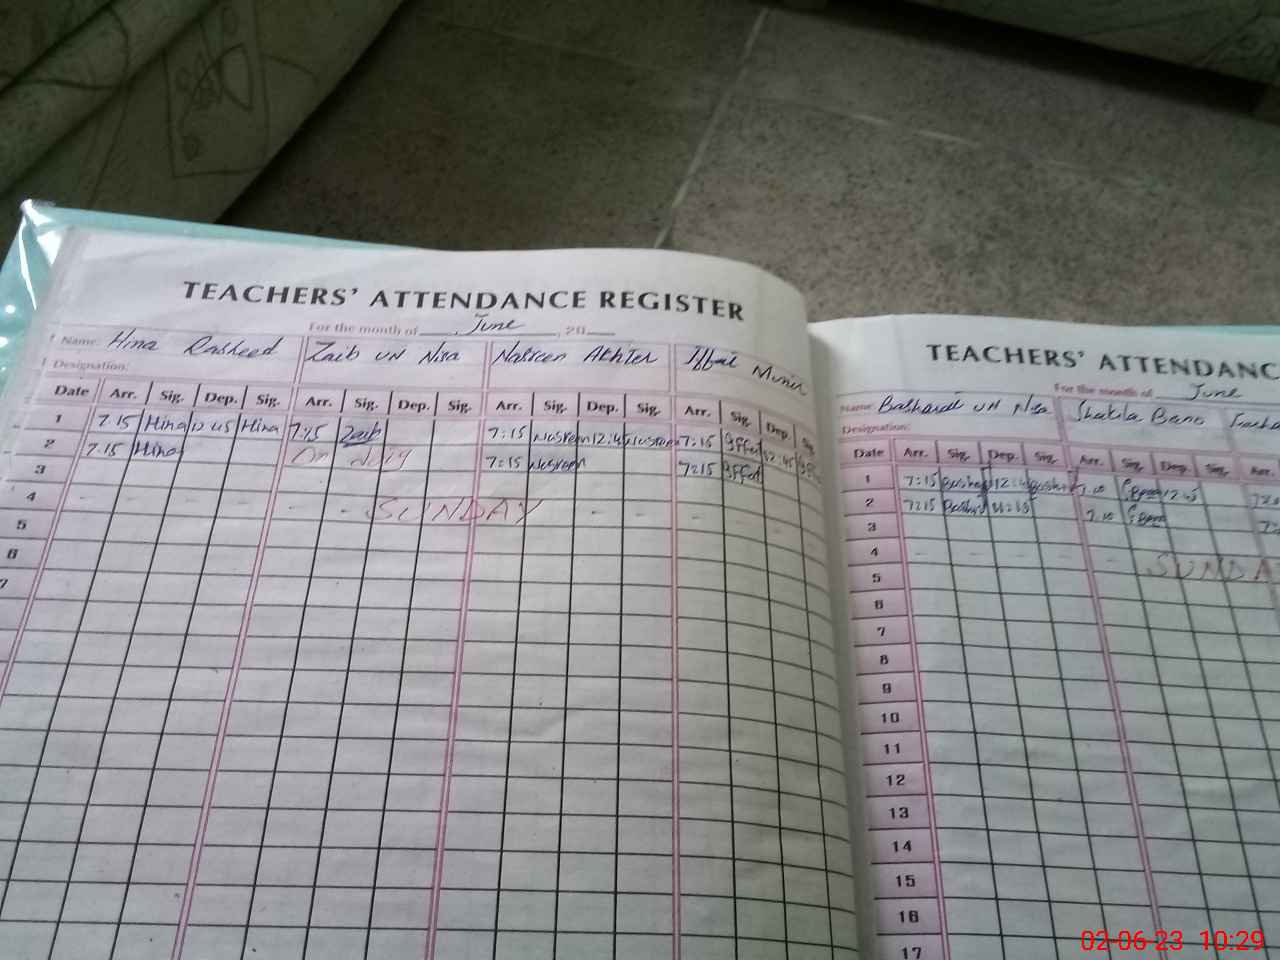 TEACHERS' ATTENDANCE REGISTER
For the month of June, 20
Name: Hina Rasheed Zaib un Nisa Nasreen Akhter Iffat Munir
Designation:
Date Arr. Sig. Dep. Sig. Arr. Sig. Dep. Sig. Arr. Sig. Dep. Sig. Arr. Sig. Dep. Sig.
1 7.15 Hina 12 45 Hina 7:15 Zaib 7:15 Nasreen 12:45 Nasreen 7:15 Iffat 12:45
2 7.15 Hina On duty 7:15 Nasreen 7:15 Iffat
3
4 SUNDAY
5
6
7
TEACHERS' ATTENDANC
For the month of June
Name: Basharat un Nisa Shakila Bano
Designation:
Date Arr. Sig. Dep. Sig. Arr. Sig. Dep. Sig. Arr.
1 7:15 12:45 7.10 Bano 12 45
2 7:15 7.10 Bano
3
4 SUNDA
5
6
7
8
9
10
11
12
13
14
15
16
17
02-06-23 10:29